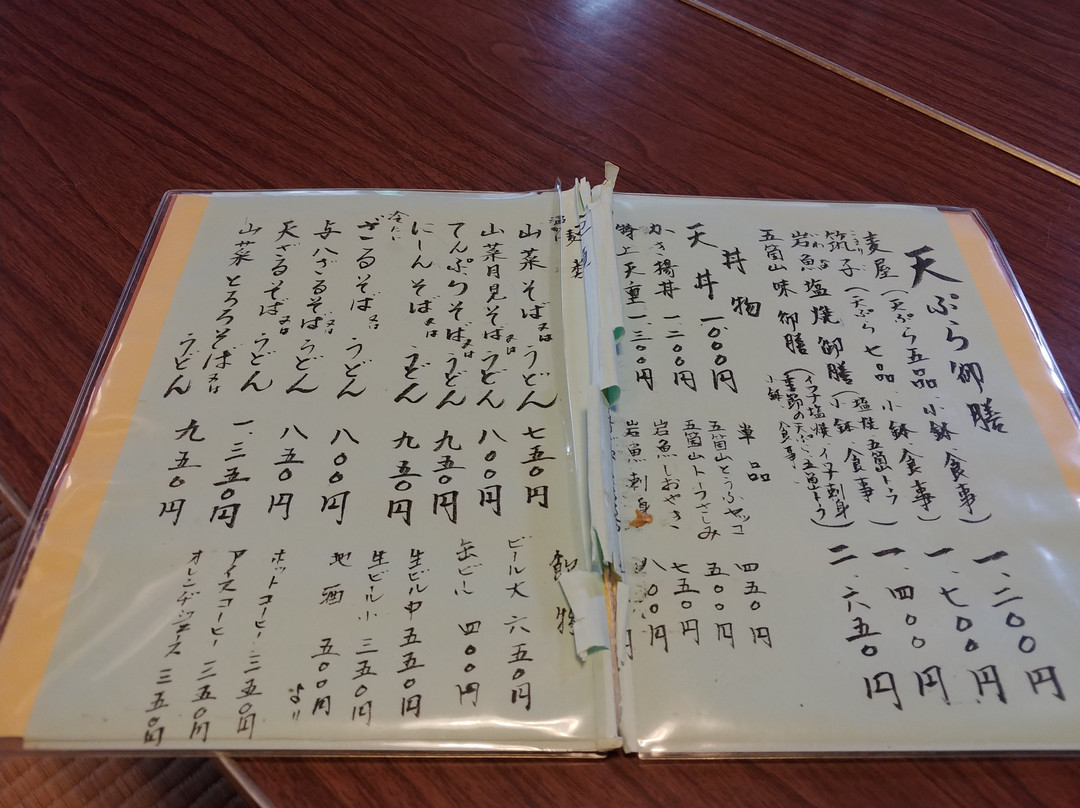 天ぷら御膳
麦屋(天ぷら五品、小鉢、食事) 一、二〇〇円
こきりこ
筑子(天ぷら七品、小鉢、食事) 一、七〇〇円
いわな
岩魚塩焼御膳(塩焼、五箇トーフ 小鉢、食事) 一、四〇〇円
五箇山味御膳(イワナ塩焼、イワナ刺身 季節の天ぷら、五箇トーフ 小鉢、食事) 二、六五〇円
丼物
天丼 一〇〇〇円
かき揚丼 一二〇〇円
特上天重 一、三〇〇円
単品
五箇山とうふヤッコ 四五〇円
五箇山トーフさしみ 五〇〇円
岩魚しおやき 七五〇円
岩魚刺身 八〇〇円
麺類
温かい
山菜そば又はうどん 七五〇円
山菜月見そば又はうどん 八〇〇円
てんぷらそば又はうどん 九五〇円
にしんそば又はうどん 九五〇円
冷たい
ざるそば又はうどん 八〇〇円
与八ざるそば又はうどん 八五〇円
天ざるそば又はうどん 一、三五〇円
山菜とろろそば又はうどん 九五〇円
飲物
ビール大 六五〇円
缶ビール 四〇〇円
生ビール中 五五〇円
生ビール小 三五〇円
地酒 五〇〇円より
ホットコーヒー 三五〇円
アイスコーヒー 三五〇円
オレンヂジュース 三五〇円